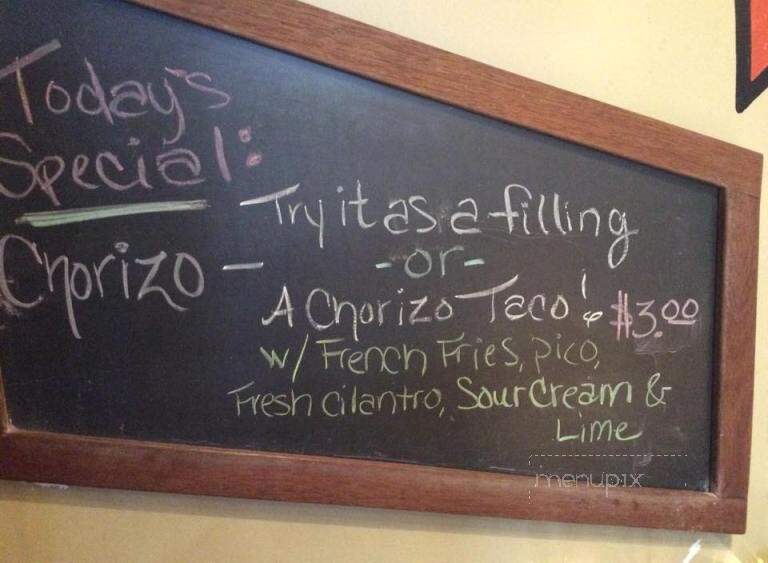 Today's
Special:
Chorizo -
- Try it as a filling
- or -
A Chorizo Taco! $3.00
w/ French Fries, pico,
Fresh cilantro, Sour Cream &
Lime
menupix